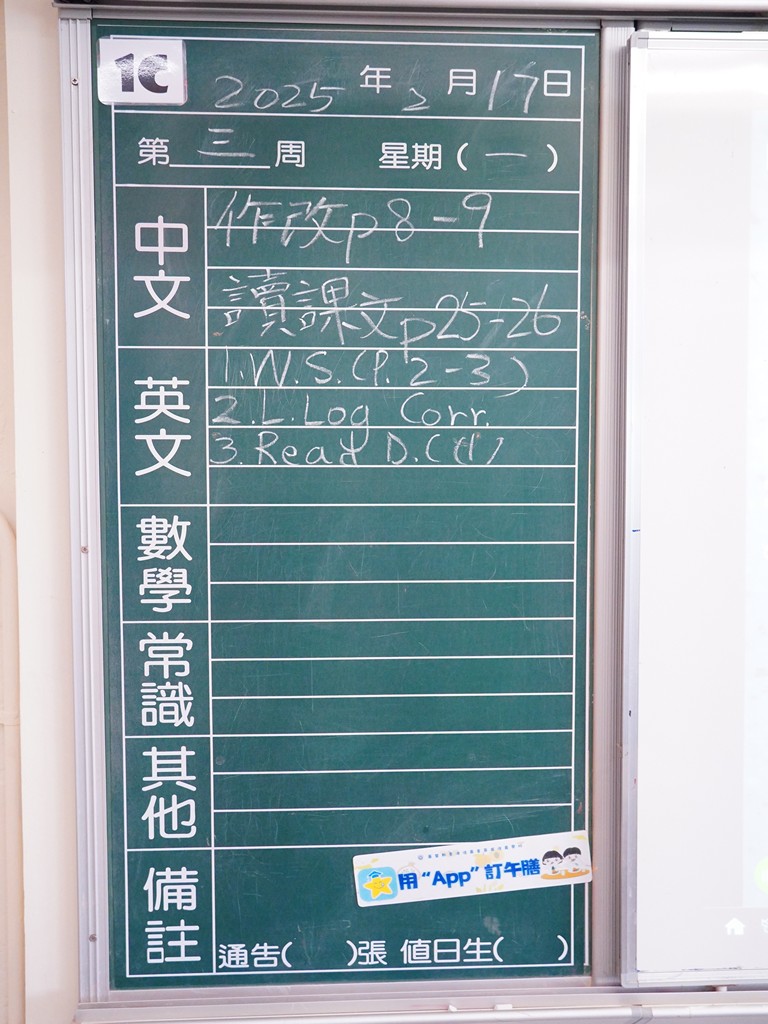 1C
2025 年 2 月 17 日
第 三 周 星期 ( 一 )
中文
作改p8-9
讀課文p25-26
英文
1.W.S.(P.2-3)
2.L.Log Corr.
3.Read D.(11)
數學
常識
其他
備註
用“App”訂午膳
通告( )張 值日生( )